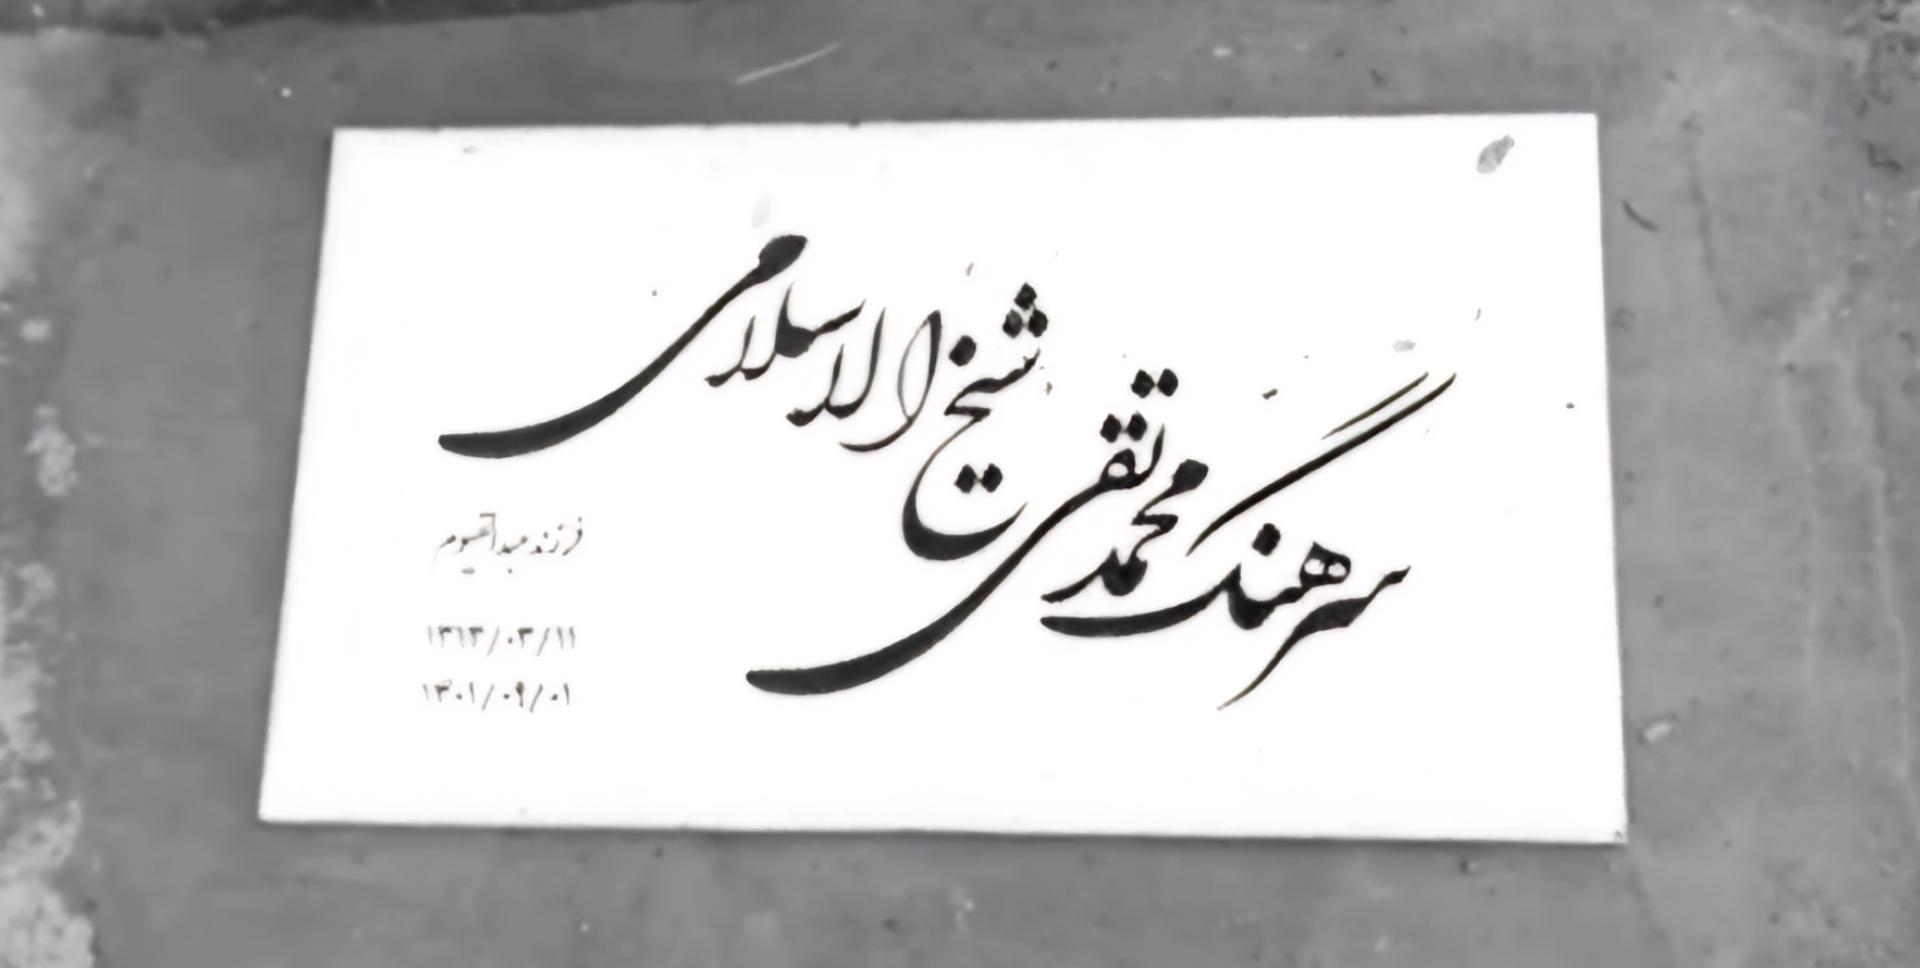 سرهنگ محمد تقی شیخ الاسلامی
فرزند عبدالقیوم
۱۳۱۳/۰۳/۱۱
۱۴۰۱/۰۹/۰۱